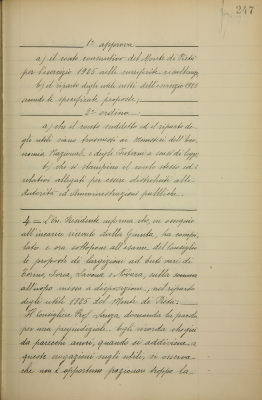 247
1º approva
a) il conto consuntivo del Monte di Pietà
per l'esercizio 1925 nelle
b) il riparto degli utili netti dell'esercizio 1925
secondo le specificate proposte;
2º ordina
a) che il conto suddetto ed il riparto de-
gli utili siano trasmessi ai Ministeri dell'Eco-
nomia Nazionale e degli Interni a sensi di legge
b) che si stampino il conto stesso ed i
relativi allegati per essere distribuiti alle
Autorità ed Amministrazioni pubbliche.
4 = L'On. Presidente informa che, in esequio
all'incarico ricevuto dalla Giunta, ha compi-
lato e ora sottopone all'esame del Consiglio
le proposte di elargizioni ad Enti vari di
Torino, Ivrea, Savona e Novara, sulla somma
all'uopo messa a disposizione, nel riparto
degli utili 1925 del Monte di Pietà:
Il Consigliere Prof. domanda la parola
per una pregiudiziale. Egli ricorda che già
da parecchi anni, quando si addiviene a
queste erogazioni sugli utili, si osserva
che non è opportuno frazionare troppo la